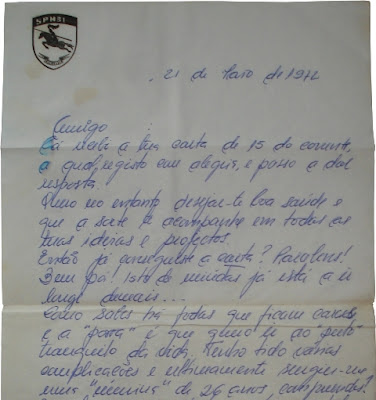 21 de Maio de 1972
Amigo
Cá recebi a tua carta de 15 do corrente,
a qual registo com alegria, e passo a dar
resposta.
Quero no entanto desejar-te boa saúde e
que a sorte te acompanhe em todas as
tuas ideias e projectos.
Então já conseguiste a carta? Parabens!
Bem pá! Isto de miúdas já está a ir
longe demais...
Como sabes há fodas que ficam caras,
e a "porra" é que quero ir ao "puto"
tranquilo da vida. Tenho tido várias
complicações e ultimamente
uma "menina" de 26 anos, compreendes?